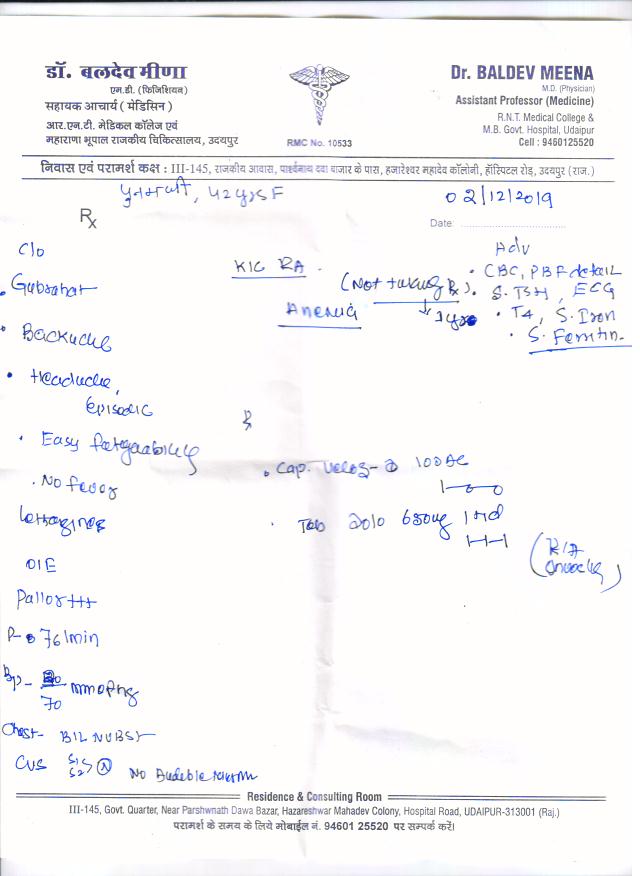 डॉ. बलदेव मीणा
एम.डी. (फिजिशियन)
सहायक आचार्य ( मेडिसिन )
आर.एन.टी. मेडिकल कॉलेज एवं
महाराणा भूपाल राजकीय चिकित्सालय, उदयपुर
RMC No. 10533
Dr. BALDEV MEENA
M.D. (Physician)
Assistant Professor (Medicine)
R.N.T. Medical College &
M.B. Govt. Hospital, Udaipur
Cell : 9460125520
निवास एवं परामर्श कक्ष : III-145, राजकीय आवास, पार्श्वनाथ दवा बाजार के पास, हजारेश्वर महादेव कॉलोनी, हॉस्पिटल रोड़, उदयपुर (राज.)
F
02/12/2019
Rx
Date:
C/o
Gubrahat
Backache
Headache,
Episodic
Easy fatiguability
No fever
O/E
Pallor +++
P- 76/min
Bp-
70
Chest- B/L NVBS+
CVS S1 S2 N No Audible murmur
K/C RA
(Not taking Rx)
Anemia
Adv
CBC, PBF detail
S. TSH, ECG
T4, S. Iron
S. Ferritin
Cap.
Tab 650mg
Residence & Consulting Room
III-145, Govt. Quarter, Near Parshwnath Dawa Bazar, Hazareshwar Mahadev Colony, Hospital Road, UDAIPUR-313001 (Raj.)
परामर्श के समय के लिये मोबाईल नं. 94601 25520 पर सम्पर्क करें।